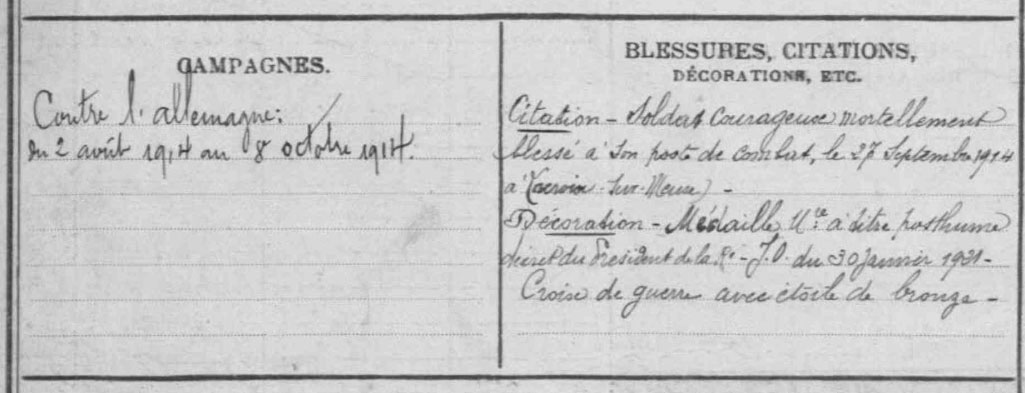 CAMPAGNES.
Contre l'allemagne:
du 2 août 1914 au 8 octobre 1914.
BLESSURES, CITATIONS,
DÉCORATIONS, ETC.
Citation - Soldat Courageux mortellement
blessé à son poste de combat, le 27 Septembre 1914
à Lacroix-Sur-Meuse) -
Décoration - Médaille Mre à titre posthume
du Président de la Re - J.O. du 30 Janvier 1931 -
Croise de guerre avec étoile de bronze -